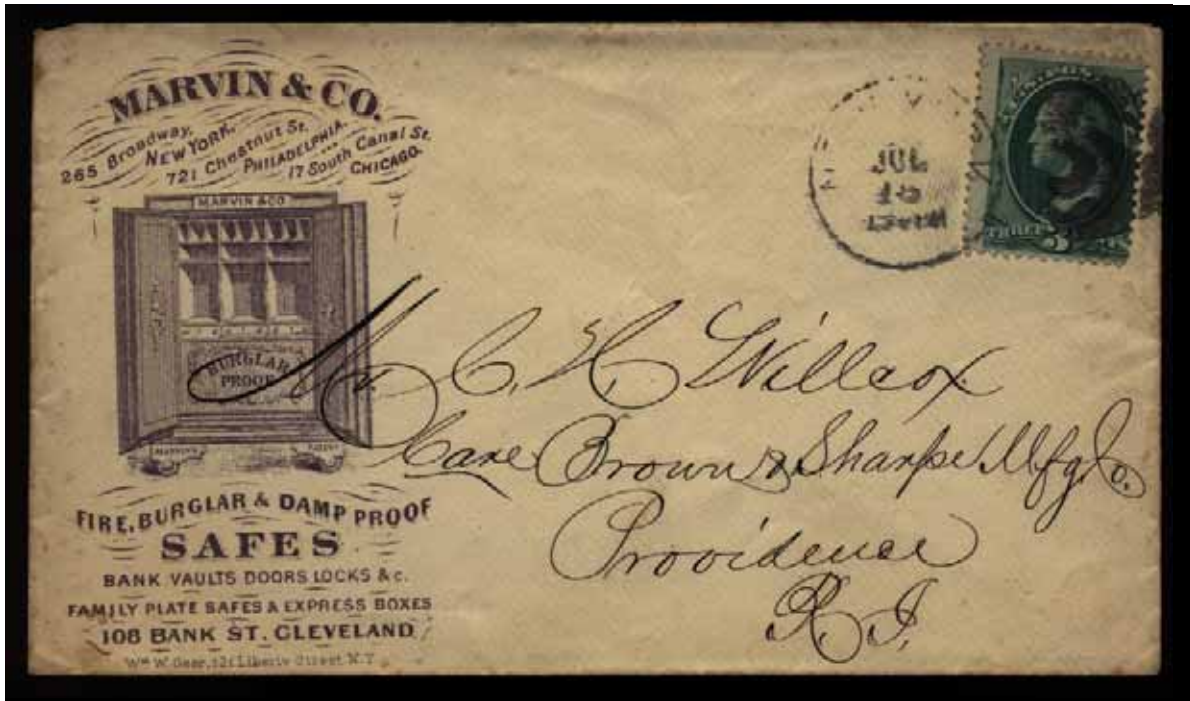 MARVIN & CO.
265 Broadway,
NEW YORK.
721 Chestnut St.
PHILADELPHIA.
17 South Canal St.
CHICAGO.
MARVIN & CO
BURGLAR
PROOF
MARVIN'S
FIRE, BURGLAR & DAMP PROOF
SAFES
BANK VAULTS DOORS LOCKS & c.
FAMILY PLATE SAFES & EXPRESS BOXES
108 BANK ST. CLEVELAND
Liberty Street N.Y.
JUL
THREE
Mr. C. H. Willcox
Care Brown & Sharpe Mfg Co.
Providence
R. I.